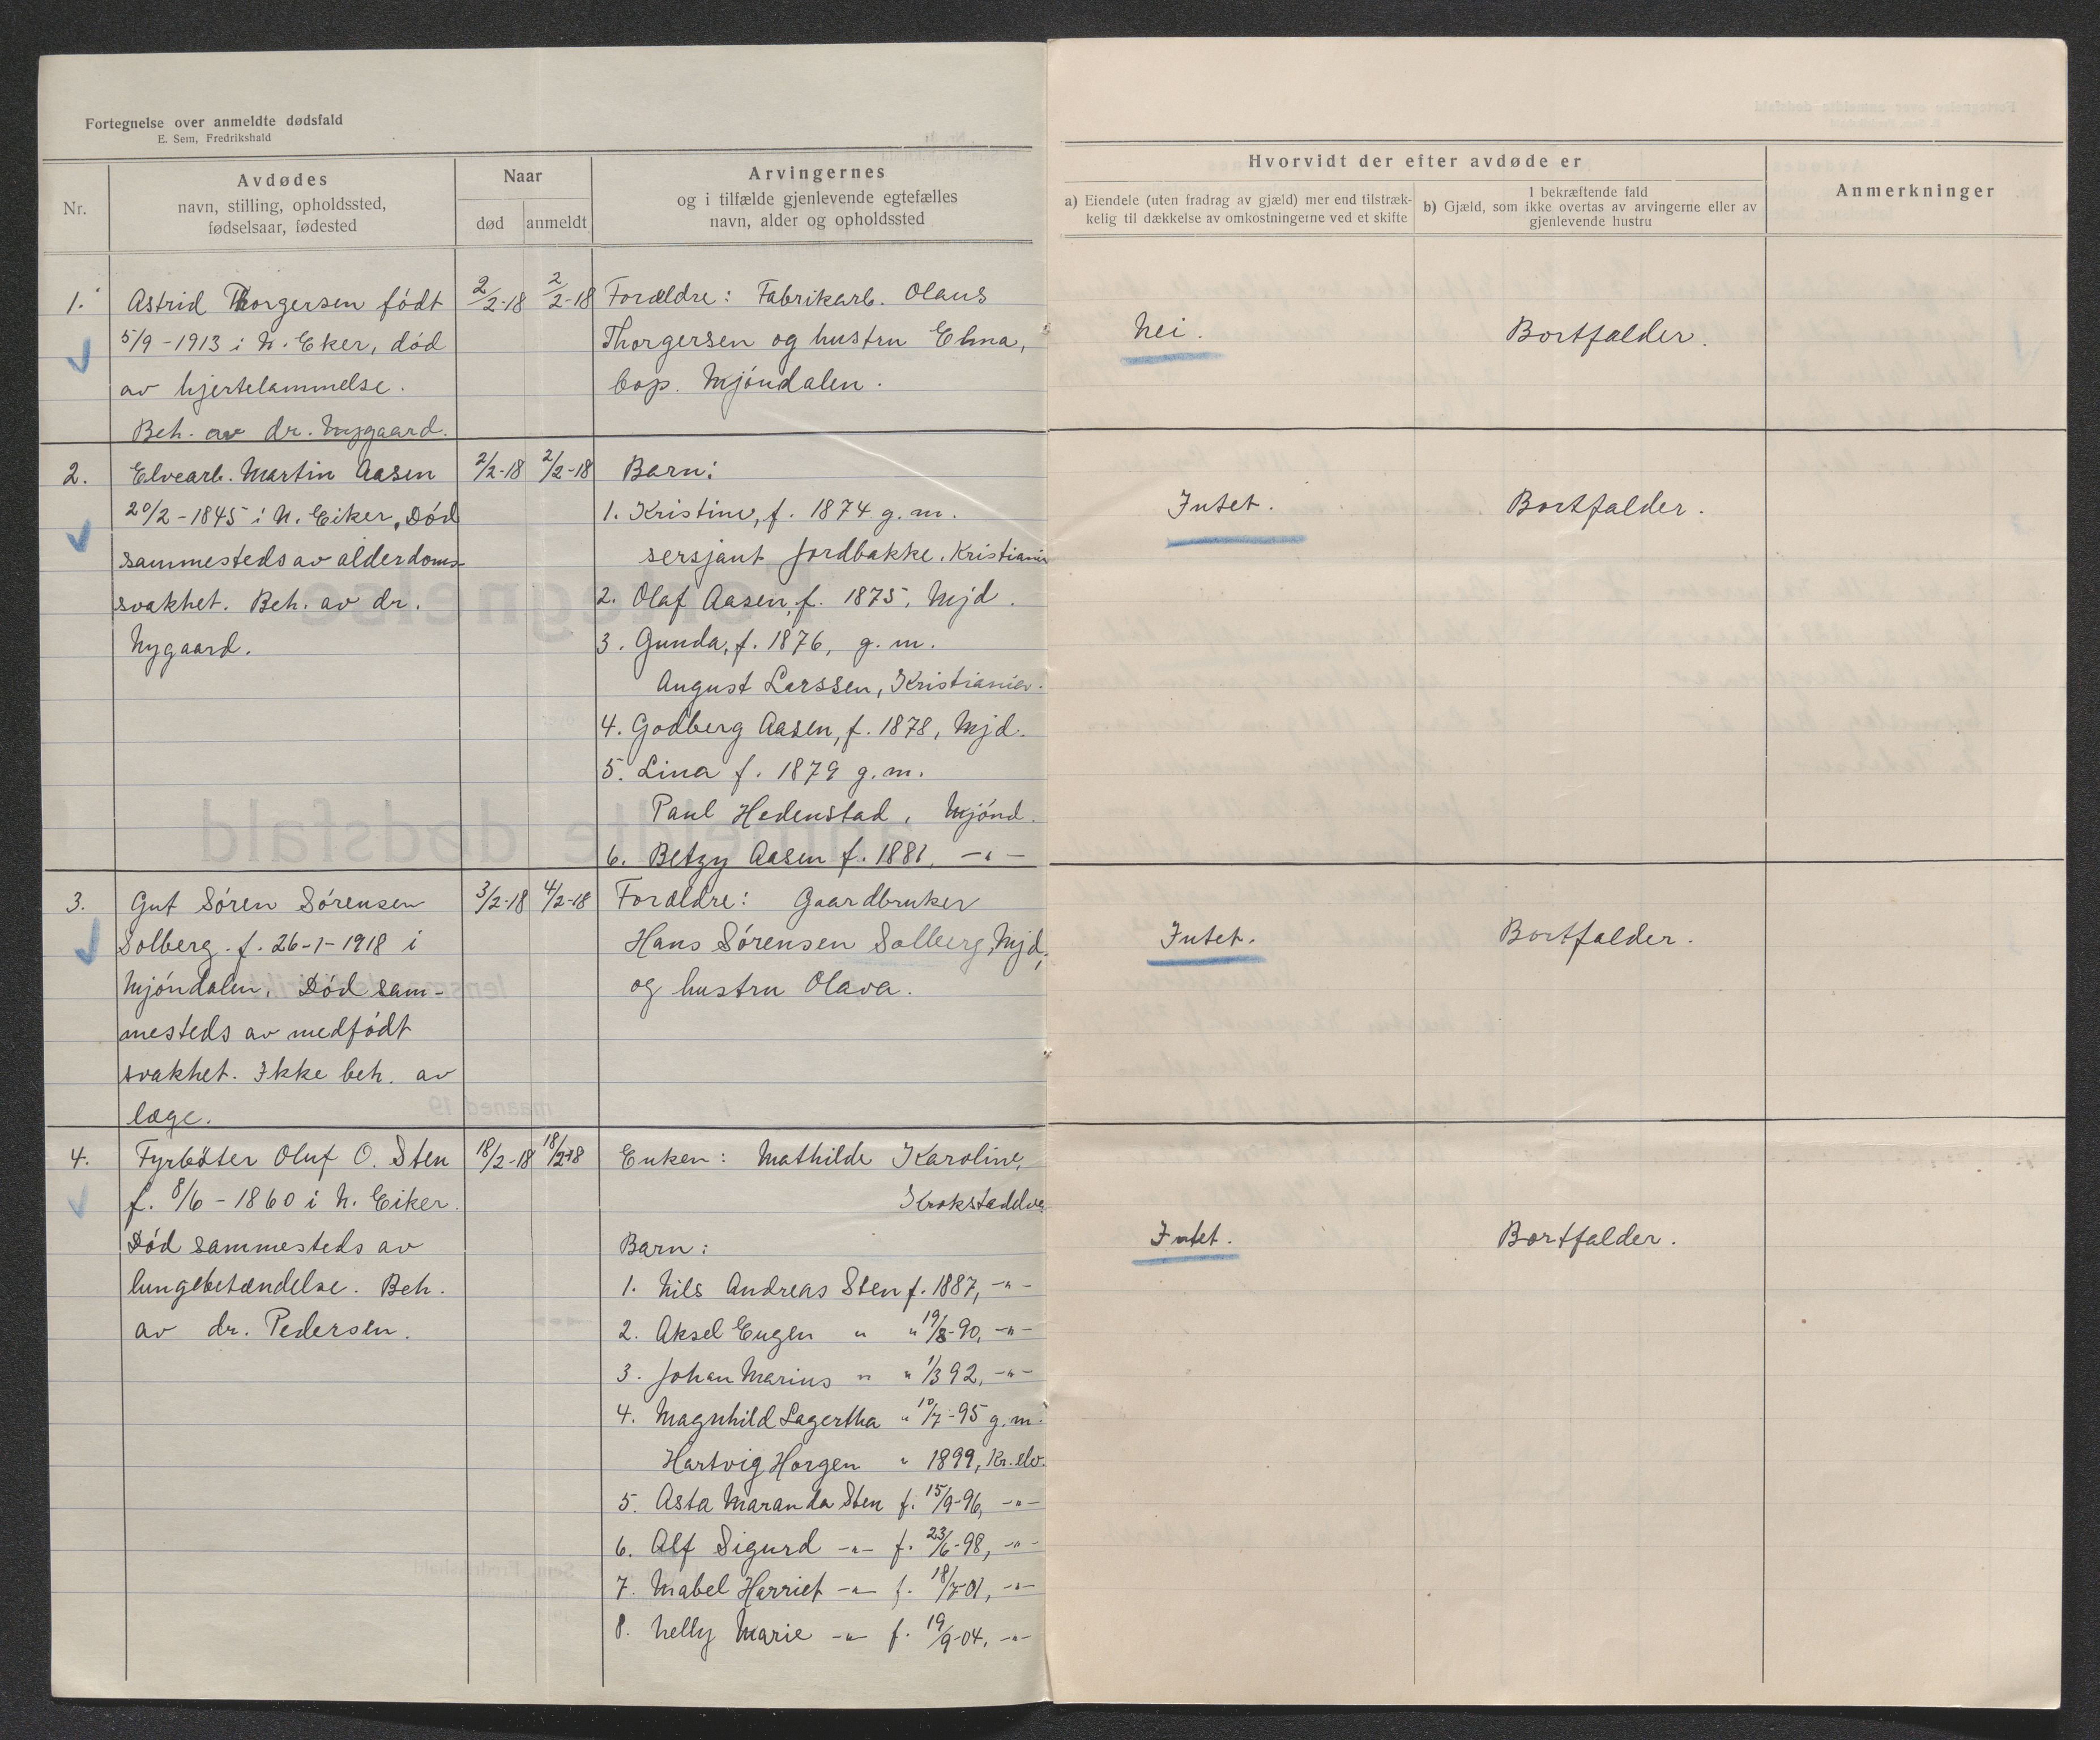 Fortegnelse over anmeldte dødsfald
E. Sem, Fredrikshald
Nr.
Avdødes
navn, stilling, opholdssted,
fødselsaar, fødested
Naar
død
anmeldt
Arvingernes
og i tilfælde gjenlevende egtefælles
navn, alder og opholdssted
Hvorvidt der efter avdøde er
a) Eiendele (uten fradrag av gjæld) mer end tilstræk-
kelig til dækkelse av omkostningerne ved et skifte
I bekræftende fald
b) Gjæld, som ikke overtas av arvingerne eller av
gjenlevende hustru
Anmerkninger
1.
Astrid Thorgersen født
5/9-1913 i N. Eker, død
av hjertelammelse.
Beh. av dr. Nygaard.
2/2-18
2/2-18
Forældre: Fabrikarb. Olaus
Thorgersen og hustru Elma,
bop. Mjöndalen.
Nei.
Bortfalder.
2.
Elvearb. Martin Aasen
20/2-1845 i N. Eiker, Död
sammesteds av alderdoms-
svakhet. Beh. av dr.
Nygaard.
2/2-18
2/2-18
Barn:
1. Kristine, f. 1874 g.m.
sersjant Jordbakke, Kristiania
2. Olaf Aasen, f. 1875, Mjd.
3. Gunda, f. 1876, g.m.
August Larssen, Kristiania.
4. Godberg Aasen, f. 1878, Mjd.
5. Lina f. 1879 g.m.
Paul Hedenstad, Mjönd.
6. Betzy Aasen f. 1881, -"-
Intet.
Bortfalder.
3.
Gut Sören Sörensen
Solberg. f. 26-1-1918 i
Mjöndalen. Död sam-
mesteds av medfödt
svakhet. Ikke beh. av
læge.
3/2-18
4/2-18
Forældre: Gaardbruker
Hans Sörensen Solberg, Mjd,
og hustru Olava.
Intet.
Bortfalder.
4.
Fyrböter Oluf O. Sten
f. 8/6-1860 i N. Eiker.
Död sammesteds av
lungebetændelse. Beh.
av dr. Pedersen.
18/2-18
18/2-18
Enken: Mathilde Karoline,
Krokstadelva
Barn:
1. Nils Andreas Sten f. 1887, -"-
2. Aksel Eugen " " 19/8-90, -"-
3. Johan Marius " " 1/3 92, -"-
4. Magnhild Lagertha " 10/7-95 g.m.
Hartvig Horgen " 1899, Kr.elv.
5. Asta Maranda Sten f. 15/9-96, -"-
6. Alf Sigurd -"- f. 23/6-98, -"-
7. Mabel Harriet -"- f. 18/7-01, -"-
8. Nelly Marie -"- f. 19/9-04, -"-
Intet.
Bortfalder.